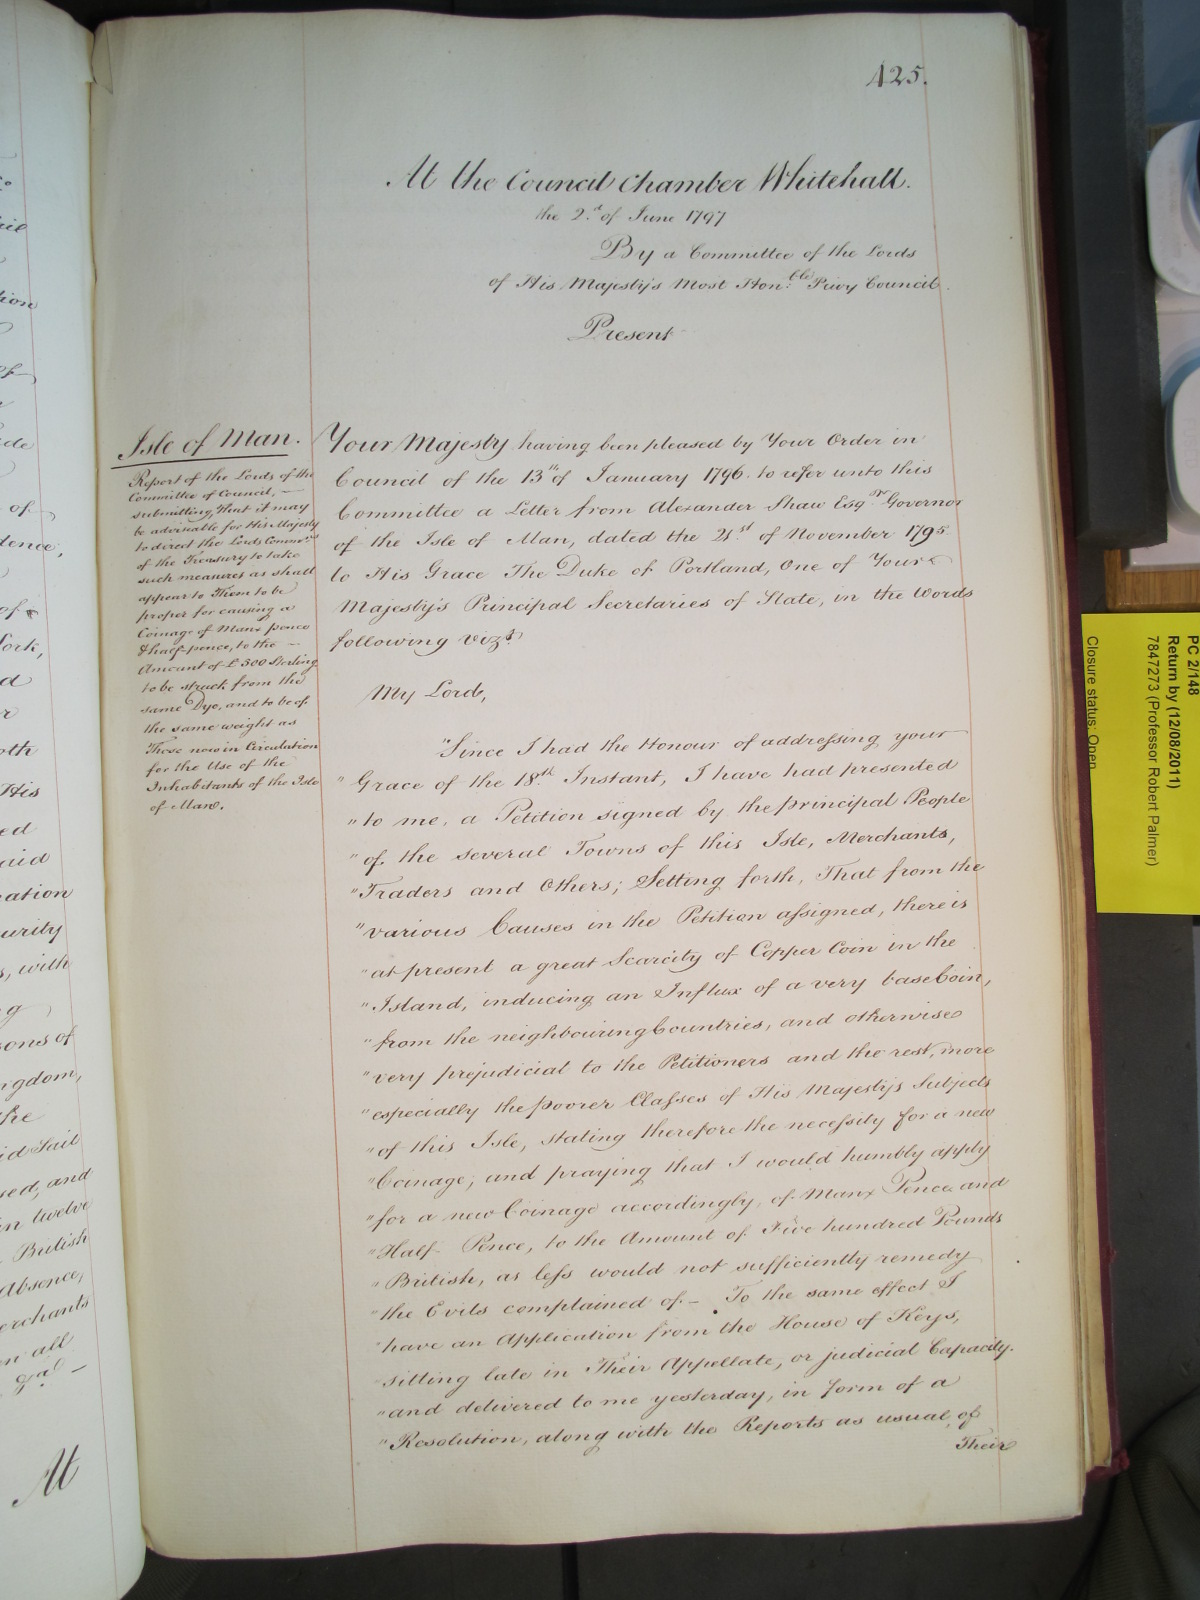 425.
At the Council Chamber Whitehall.
the 2.d of June 1797
By a Committee of the Lords
of His Majesty's Most Hon:ble Privy Council.
Present
Isle of Man.
Report of the Lords of the
Committee of Council, —
submitting, that it may
be advisable for His Majesty
to direct the Lords Commrs.
of the Treasury to take
such measures as shall
appear to Them to be
proper for causing a
Coinage of Manx pence
& half-pence, to the —
Amount of £500 Sterling
to be struck from the
same Dye, and to be of
the same weight as
Those now in Circulation
for the Use of the
Inhabitants of the Isle
of Man.
Your Majesty having been pleased by Your Order in
Council of the 13th of January 1796. to refer unto this
Committee a Letter from Alexander Shaw Esqr. Governor
of the Isle of Man, dated the 21st of November 1795.
to His Grace The Duke of Portland, One of Your
Majesty's Principal Secretaries of State, in the Words
following vizt.
My Lord,
"Since I had the Honour of addressing your
"Grace of the 18th Instant, I have had presented
"to me, a Petition signed by the principal People
"of the several Towns of this Isle, Merchants,
"Traders and Others; Setting forth, That from the
"various Causes in the Petition assigned, there is
"at present a great Scarcity of Copper Coin in the
"Island, inducing an Influx of a very base Coin,
"from the neighbouring Countries, and otherwise
"very prejudicial to the Petitioners and the rest, more
"especially the poorer Classes of His Majesty's Subjects
"of this Isle, stating therefore the necessity for a new
"Coinage, and praying that I would humbly apply
"for a new Coinage accordingly, of Manx Pence and
"Half Pence, to the Amount of Five hundred Pounds
"British, as less would not sufficiently remedy
"the Evils complained of — To the same effect I
"have an Application from the House of Keys,
"sitting late in Their Appellate, or judicial Capacity.
"and delivered to me yesterday, in form of a
"Resolution, along with the Reports as usual of
Their
At
PC 2/148
Return by (12/08/2011)
7847273 (Professor Robert Palmer)
Closure status: Open